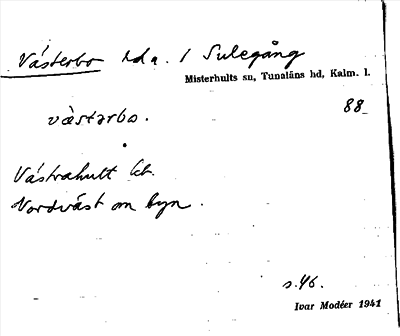 Västerbo hda. 1 Sulegång
Misterhults sn, Tunaläns hd, Kalm. l.
88
västərbo.
Västrahult kt.
Nordväst om byn.
s. 46.
Ivar Modéer 1941